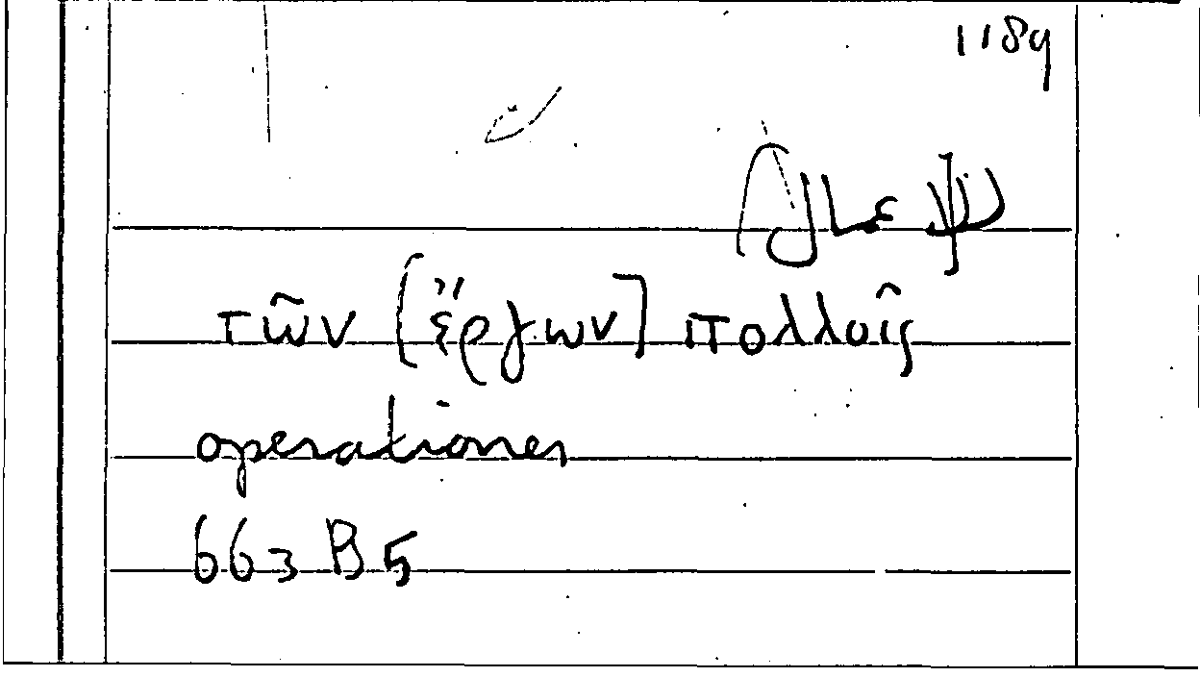 1189
τῶν [ἔργων] πολλοῖς
operationes
663 B 5